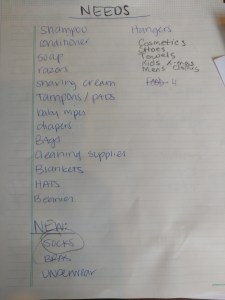 NEEDS
Shampoo
conditioner
Soap
razors
shaving cream
Tampons / pads
baby wipes
diapers
BAgs
Cleaning supplies
Blankets
HATS
Beanies
Hangers
Cosmetics
Shoes
Towels
Kids
Mens Clothes
NEW
SOCKS
BRAS
UNDERWEAR